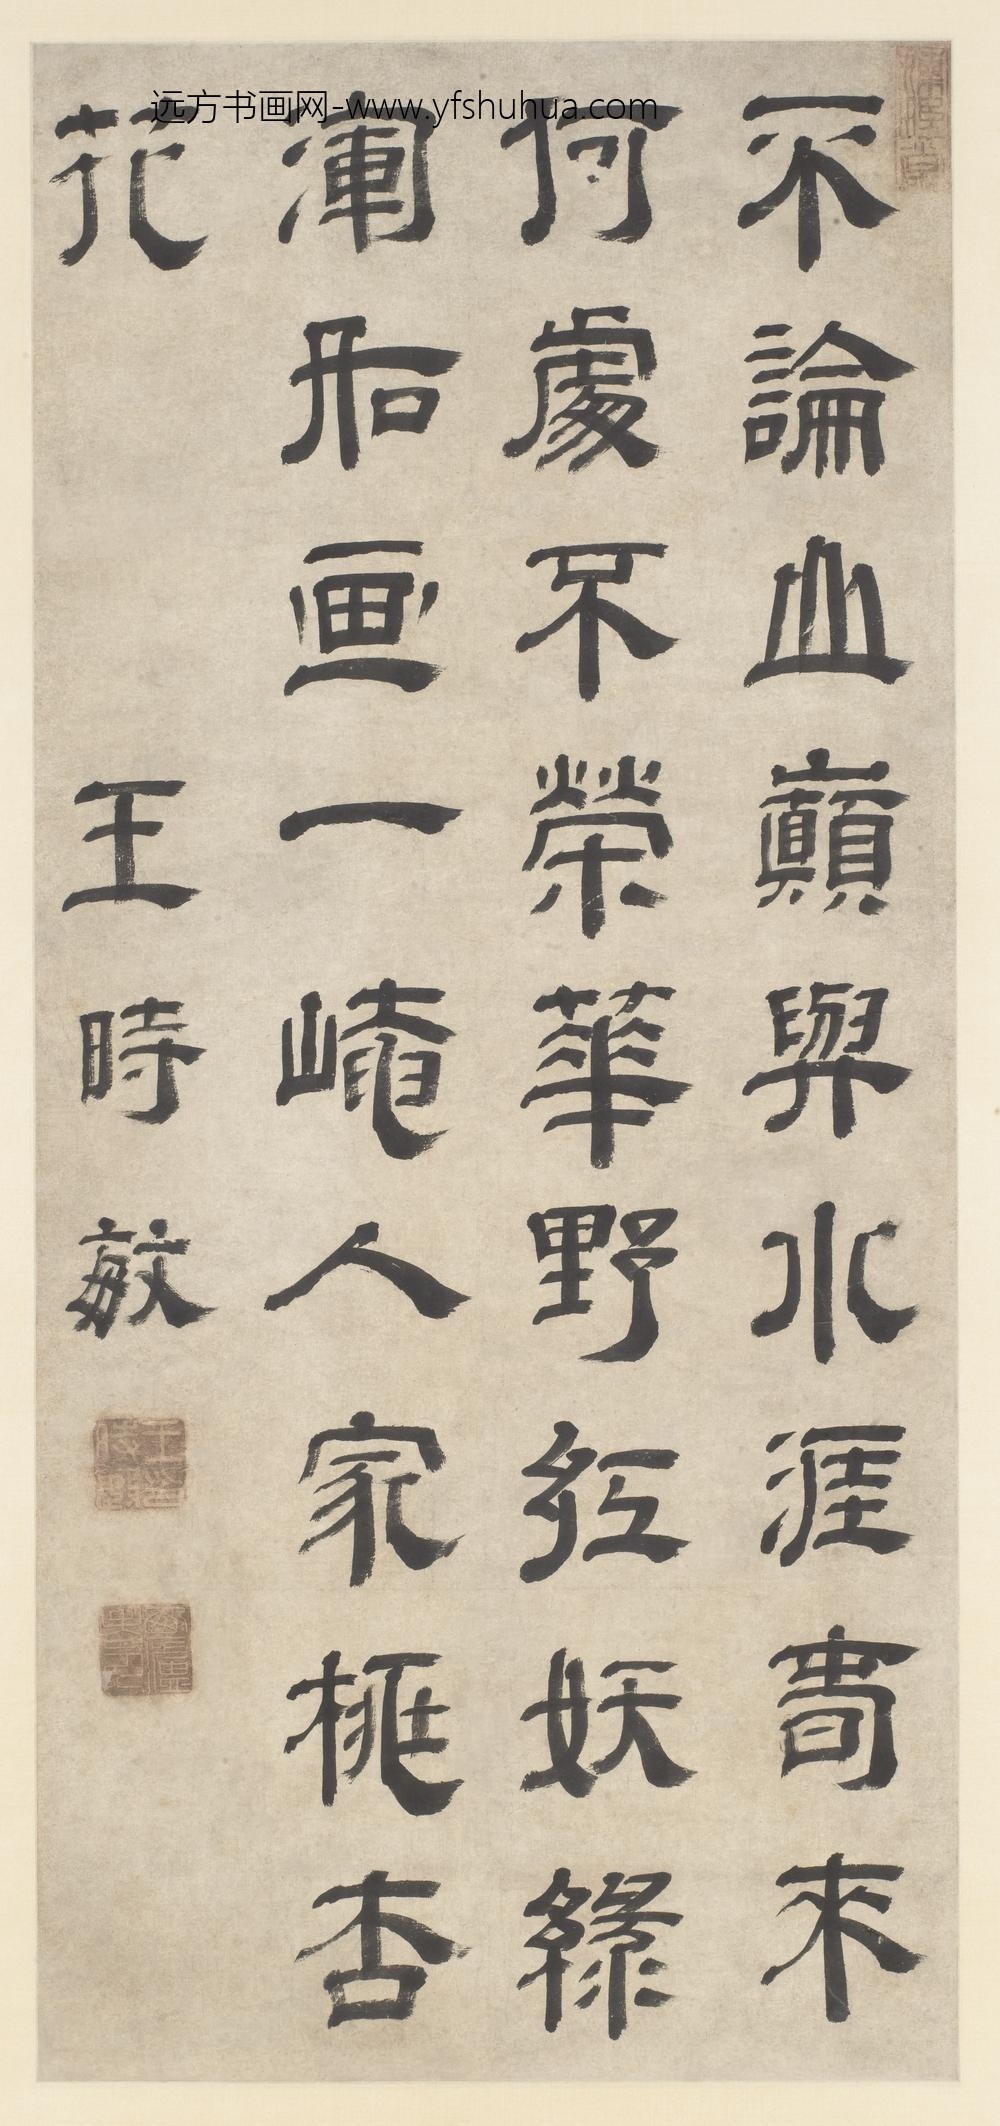 远方书画网-www.yfshuhua.com
不論山巔與水涯春來
何處不榮華野紅妖綠
渾如画一㡋人家桃杏
花
王時敏